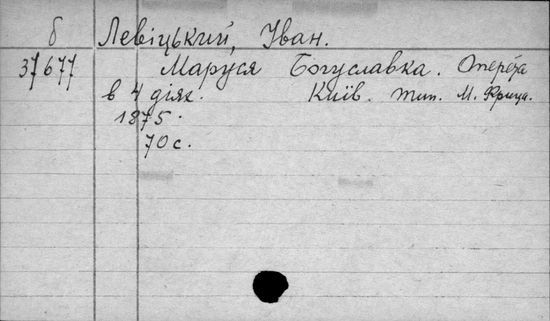 б Левіцький, Іван.
37677 Маруся Богуславка. Оперета
в 4 діях. Київ. тип. М. Фрица.
1875.
70 с.